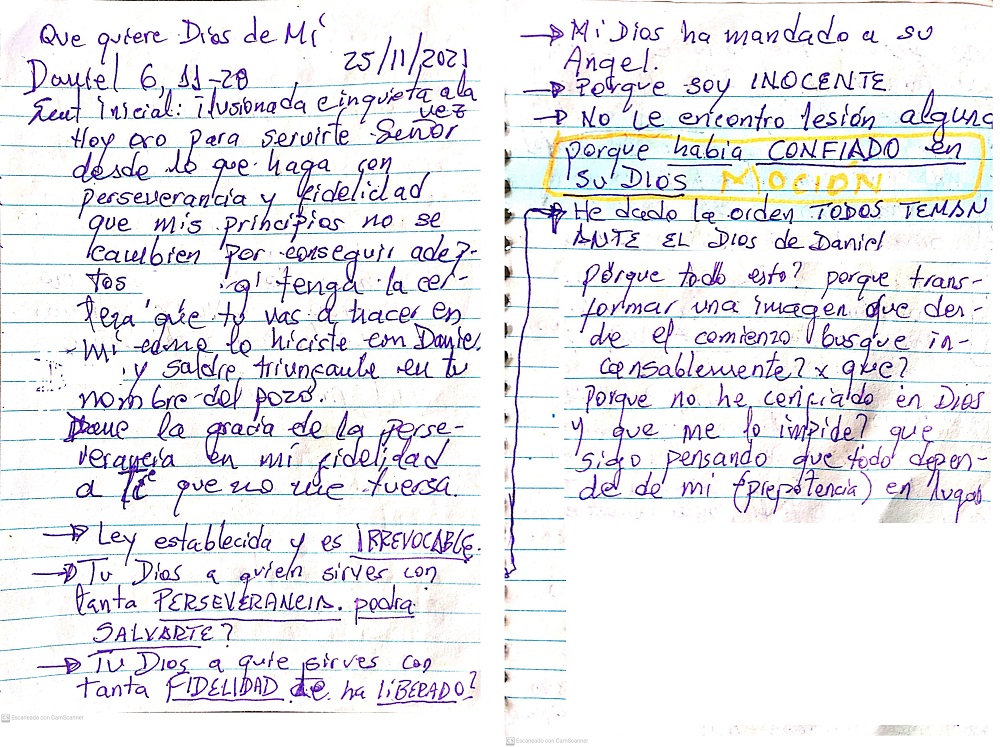 Que quiere Dios de Mí
25/11/2021
Daniel 6, 11-28
Sent inicial: ilusionada e inquieta a la
vez
Hoy oro para servirte Señor
desde lo que haga con
perseverancia y fidelidad
que mis principios no se
cambien por conseguir adep-
tos q' tenga la cer-
teza que tu vas a hacer en
mi como lo hiciste con Daniel
y saldre triunfante en tu
nombre del pozo.
Dame la gracia de la perse-
verancia en mi fidelidad
a Ti que no me tuersa.
→ Ley establecida y es IRREVOCABLE.
→ Tu Dios a quien sirves con
tanta PERSEVERANCIA. podra
SALVARTE?
→ TU Dios a quie sirves con
tanta FIDELIDAD te ha LIBERADO?
Escaneado con CamScanner
→ Mi Dios ha mandado a su
Angel.
→ Porque soy INOCENTE
→ No le encontro lesión alguna
porque había CONFIADO en
su DIOS MOCION
→ He dado la orden TODOS TEMAN
ANTE EL Dios de Daniel
porque todo esto? porque trans-
formar una imagen que des-
de el comienzo busque in-
cansablemente? x que?
porque no he confiado en Dios
y que me lo impide? que
sigo pensando que todo depen-
de de mi (prepotencia) en lugar
Escaneado con CamScanner